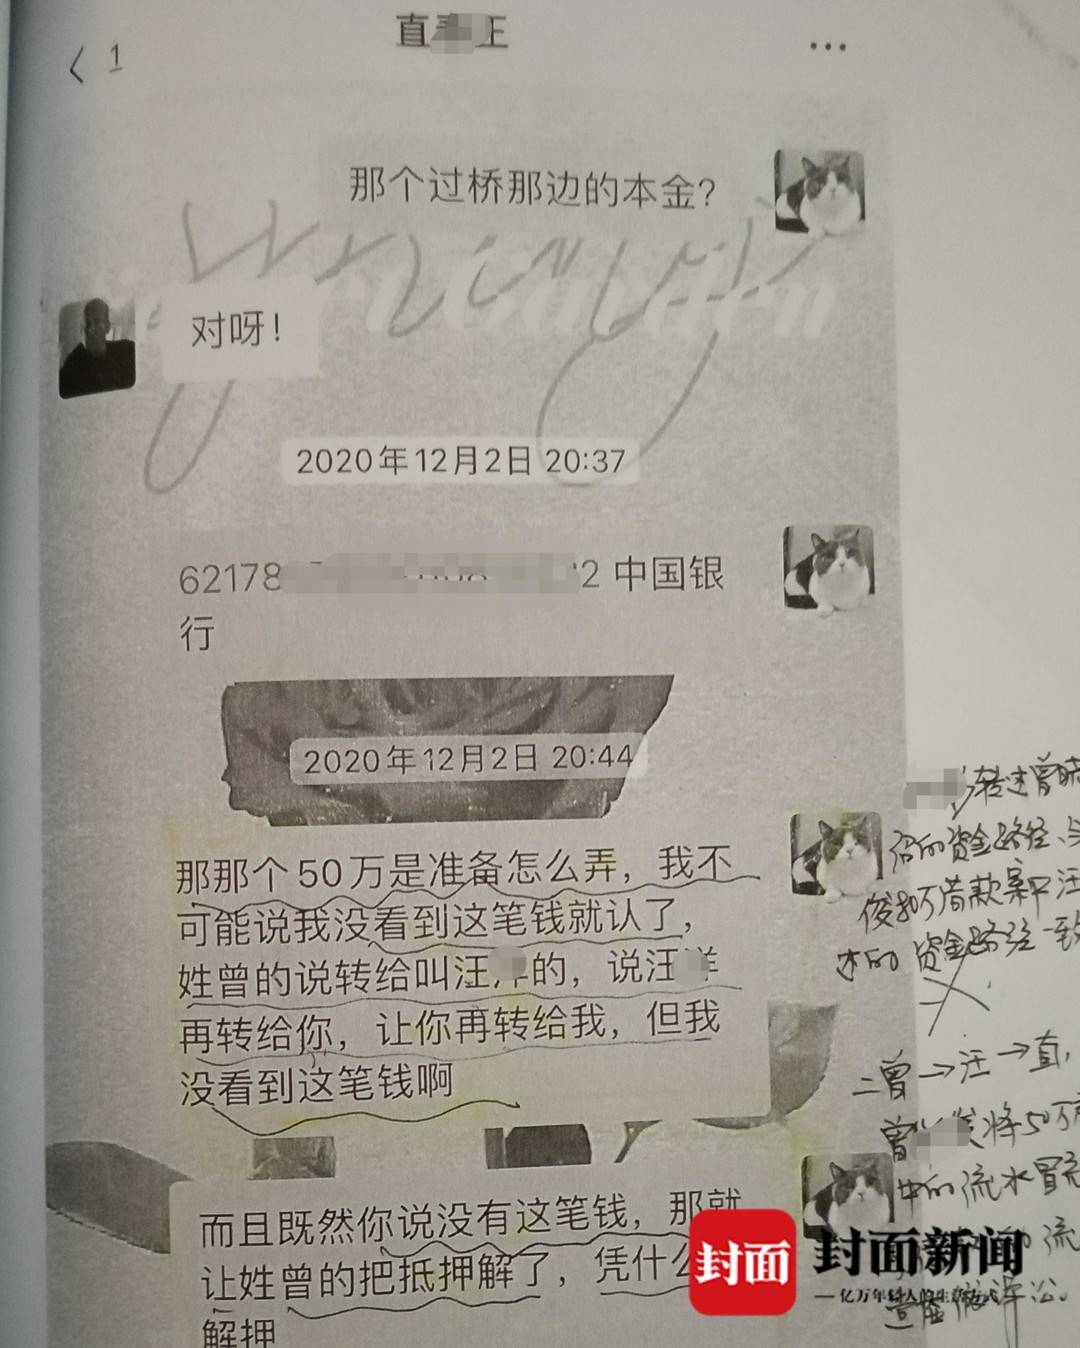 1
直
王
那个过桥那边的本金?
对呀!
2020年12月2日 20:37
62178
2 中国银
行
2020年12月2日 20:44
那那个50万是准备怎么弄，我不
可能说我没看到这笔钱就认了，
姓曾的说转给叫汪
的，说汪洋
再转给你，让你再转给我，但我
没看到这笔钱啊
而且既然你说没有这笔钱，那就
让姓曾的把抵押解了，凭什么
解押
转过曾
的资金路径、
俊80万借款案中汪
的 资金路径一致
二曾→汪→直,
曾
将50万
中的流水冒充
流
封面
封面新闻
亿万年轻人的生活方式